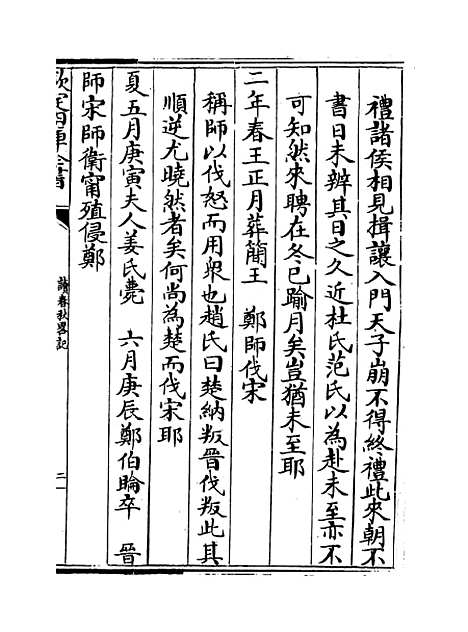 禮諸侯相見揖讓入門天子崩不得終禮此來朝不
書日未辨其日之久近杜氏范氏以為赴未至亦不
可知然來聘在冬已踰月矣豈猶未至耶
二年春王正月葬簡王　鄭師伐宋
稱師以伐怒而用衆也趙氏曰楚納叛晉伐叛此其
順逆尤曉然者矣何尚為楚而伐宋耶
夏五月庚寅夫人姜氏薨　六月庚辰鄭伯睔卒　晉
師宋師衛甯殖侵鄭
欽定四庫全書
讀春秋畧記